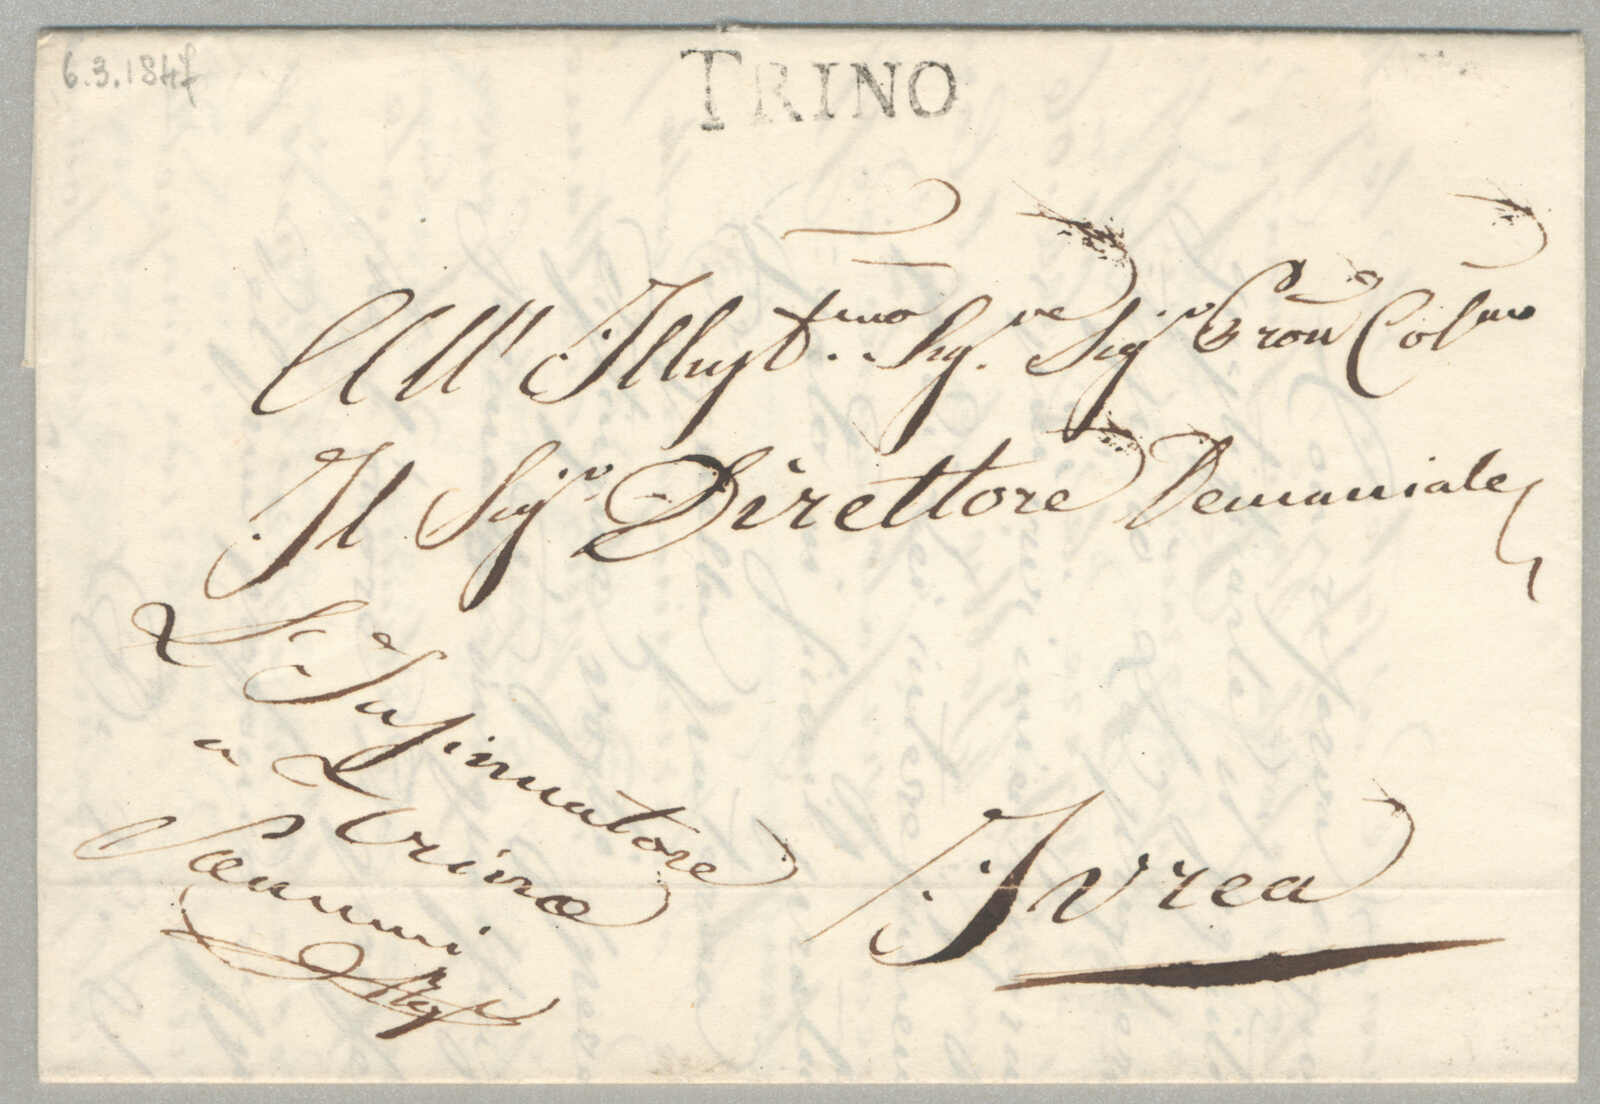 6.3.1847
TRINO
All' Illust.mo Sig.re Sig.r Pron Col.mo
Il Sig.r Direttore Demaniale
L'Insinuatore
in Trino
Ivrea